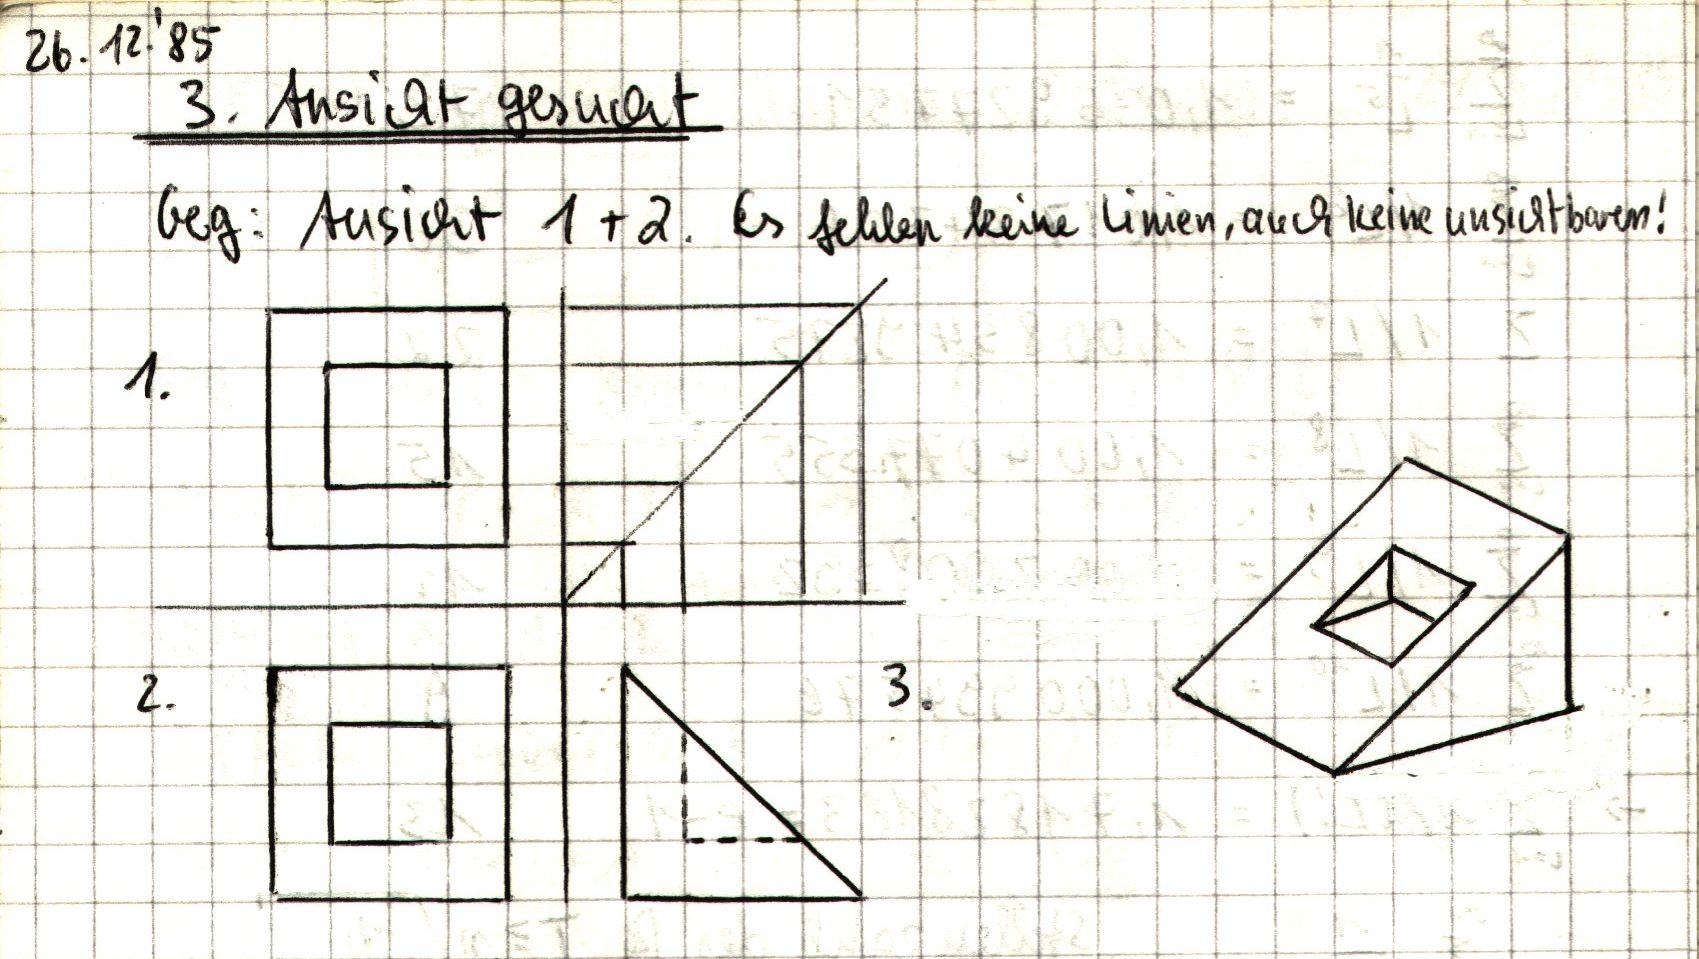 26.12.'85
3. Ansicht gesucht
Geg: Ansicht 1 + 2. Es fehlen keine Linien, auch keine unsichtbaren!
1.
2.
3.